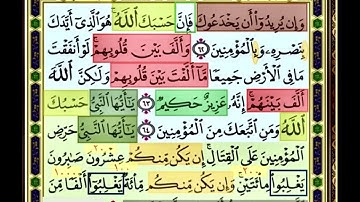 وَإِن يُرِيدُوٓا۟ أَن يَخْدَعُوكَ فَإِنَّ حَسْبَكَ ٱللَّهُ ۚ هُوَ ٱلَّذِىٓ أَيَّدَكَ
بِنَصْرِهِۦ وَبِٱلْمُؤْمِنِينَ ٦٢ وَأَلَّفَ بَيْنَ قُلُوبِهِمْ ۚ لَوْ أَنفَقْتَ
مَا فِى ٱلْأَرْضِ جَمِيعًا مَّآ أَلَّفْتَ بَيْنَ قُلُوبِهِمْ وَلَـٰكِنَّ ٱللَّهَ
أَلَّفَ بَيْنَهُمْ ۚ إِنَّهُۥ عَزِيزٌ حَكِيمٌ ٦٣ يَـٰٓأَيُّهَا ٱلنَّبِىُّ حَسْبُكَ
ٱللَّهُ وَمَنِ ٱتَّبَعَكَ مِنَ ٱلْمُؤْمِنِينَ ٦٤ يَـٰٓأَيُّهَا ٱلنَّبِىُّ حَرِّضِ
ٱلْمُؤْمِنِينَ عَلَى ٱلْقِتَالِ ۚ إِن يَكُن مِّنكُمْ عِشْرُونَ صَـٰبِرُونَ
يَغْلِبُوا۟ مِا۟ئَتَيْنِ ۚ وَإِن يَكُن مِّنكُم مِّا۟ئَةٌ يَغْلِبُوٓا۟ أَلْفًا مِّنَ